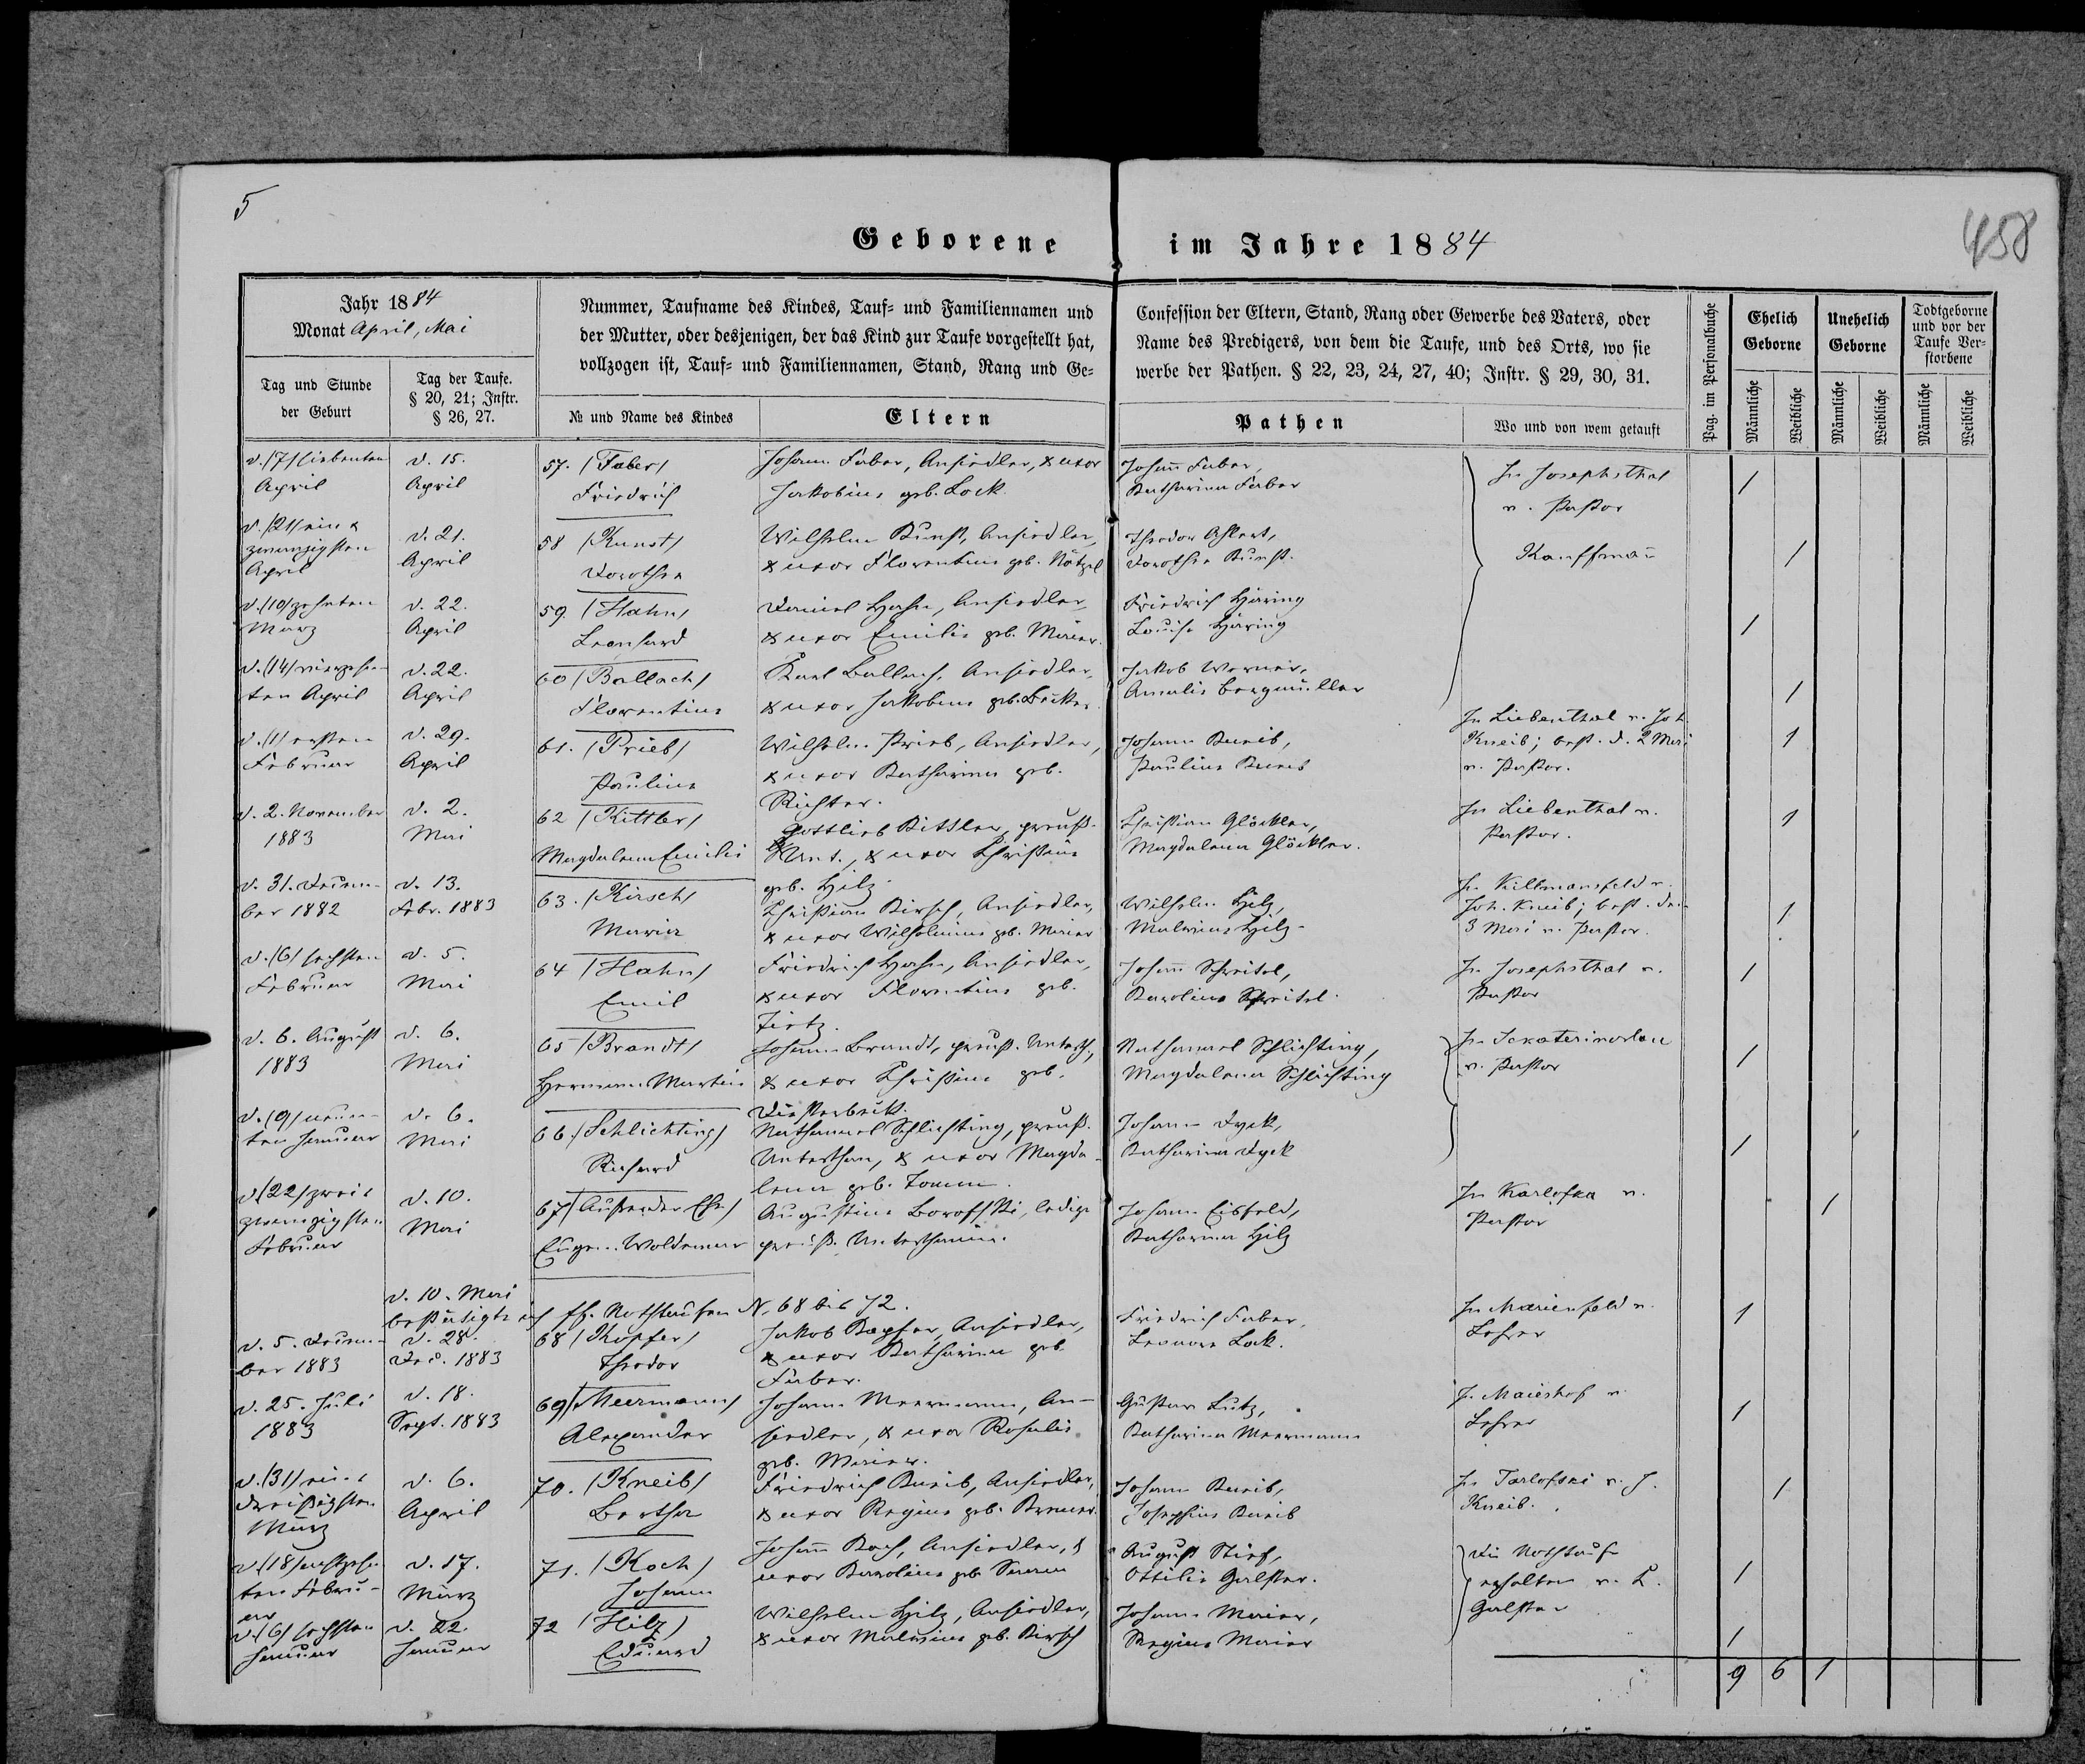 5
458
Geborene im Jahre 1884
Jahr 1884
Monat April, Mai
Tag und Stunde
der Geburt
Tag der Taufe.
§ 20, 21; Instr.
§ 26, 27.
Nummer, Taufname des Kindes, Tauf= und Familiennamen und
der Mutter, oder desjenigen, der das Kind zur Taufe vorgestellt hat,
vollzogen ist, Tauf= und Familiennamen, Stand, Rang und Ge=
№ und Name des Kindes
Eltern
Confession der Eltern, Stand, Rang oder Gewerbe des Vaters, oder
Name des Predigers, von dem die Taufe, und des Orts, wo sie
werbe der Pathen. § 22, 23, 24, 27, 40; Instr. § 29, 30, 31.
Pathen
Wo und von wem getauft
Pag. im Personalbuche
Ehelich
Geborne
Unehelich
Geborne
Todtgeborne
und vor der
Taufe Ver=
storbene
Männliche
Weibliche
Männliche
Weibliche
Männliche
Weibliche
d. (7) siebenten
April
d. 15.
April
57. (Faber)
Friedrich
Johann Faber, Ansiedler, & uxor
Jakobine geb. Lock
Johann Faber,
Katharina Faber
In Josephsthal
v. Pastor
Kauffmann
1
d. (21) ein &
zwanzigsten
April
d. 21.
April
58 (Kunst)
Dorothea
Wilhelm Kunst, Ansiedler,
& uxor Florentine geb. Nätzel
Theodor Ahlert,
Dorothea Kunst.
1
d. (10) zehnten
März
d. 22.
April
59. (Hahn)
Leonhard
Daniel Hahn, Ansiedler,
& uxor Emilie geb. Maier.
Friedrich Häring
Louise Häring
1
d. (14) vierzehn-
ten April
d. 22.
April
60 (Ballach)
Florentine
Karl Ballach, Ansiedler,
& uxor Jakobine geb.
Jakob Werner,
Amalie Bergmüller
1
d. (1) ersten
Februar
d. 29.
April
61. (Prieb)
Pauline
Wilhelm Prieb, Ansiedler,
& uxor Katharina geb.
Richter.
Johann Kneib,
Pauline Kneib
In Liebenthal v. Joh.
Kneib; best. d. 2 Mai
v. Pastor.
1
d. 2. November
1883
d. 2.
Mai
62 (Kittler)
Magdalena Emilie
Gottlieb Kittler, preuß.
Unt., & uxor Christine
geb. Hilz
Christian Glöckler,
Magdalena Glöckler.
In Liebenthal v.
Pastor.
1
d. 31. Decem-
ber 1882
d. 13.
Febr. 1883
63. (Kirsch)
Maria
Christian Kirsch, Ansiedler,
& uxor Wilhelmine geb. Maier
Wilhelm Hilz,
Malwine Hilz
In Killmansfeld v.
Joh. Kneib; best. den
3 Mai v. Pastor.
1
d. (6) sechsten
Februar
d. 5.
Mai
64 (Hahn)
Emil
Friedrich Hahn, Ansiedler,
& uxor Florentine geb.
Tietz.
Johann Schreitel,
Karoline Schreitel.
In Josephsthal v.
Pastor
1
d. 6. August
1883
d. 6.
Mai
65 (Brandt)
Hermann Martin
Johann Brandt, preuß. Unterth.,
& uxor Christine geb.
Nathanael Schlichting,
Magdalena Schlichting
In Jekaterinoslau
v. Pastor
1
d. (9) neun-
ten Januar
d. 6.
Mai
66. (Schlichting)
Richard
Nathanael Schlichting, preuß.
Unterthan, & uxor Magda-
lena geb. Tomm.
Johann Dyck,
Katharina Dyck
1
d. (22) zwei &
zwanzigsten
Februar
d. 10.
Mai
67 (Außer der Ehe)
Eugen Woldemar
Augustine Boroffski, ledige
preuß. Unterthanin.
Johann Eisfeld,
Katharina Hilz
In Karlofka v.
Pastor
1
d. 10. Mai
bestätigte ich ff. Nothtaufen N. 68 bis 72.
d. 5. Decem-
ber 1883
d. 28.
Dec. 1883
68 (Kopfer)
Theodor
Jakob Kopfer, Ansiedler,
& uxor Katharina geb.
Faber.
Friedrich Faber,
Leonore Lock.
In Marienfeld v.
Lehrer
1
d. 25. Juli
1883
d. 18.
Sept. 1883
69 (Meermann)
Alexander
Johann Meermann, An-
siedler, & uxor Rosalie
geb. Maier.
Gustav Lutz,
Katharina Meermann
In Maieshof v.
Lehrer
1
d. (31) ein &
dreißigsten
März
d. 6.
April
70. (Kneib)
Bertha
Friedrich Kneib, Ansiedler,
& uxor Regine geb. Kremer.
Johann Kneib,
Josephine Kneib
In Tarlofski v. J.
Kneib.
1
d. (18) achtzehn
ten Febru-
ar
d. 17.
März
71. (Koch)
Johann
Johann Koch, Ansiedler, &
uxor Karoline geb.
August Stief,
Ottilie Galster.
Die Nothtaufe
erhalten v. L.
Galster
1
d. (6) sechsten
Januar
d. 22.
Januar
72 (Hilz)
Eduard
Wilhelm Hilz, Ansiedler,
& uxor Malwine geb. Kirsch
Johann Maier,
Regine Maier
1
9 6 1